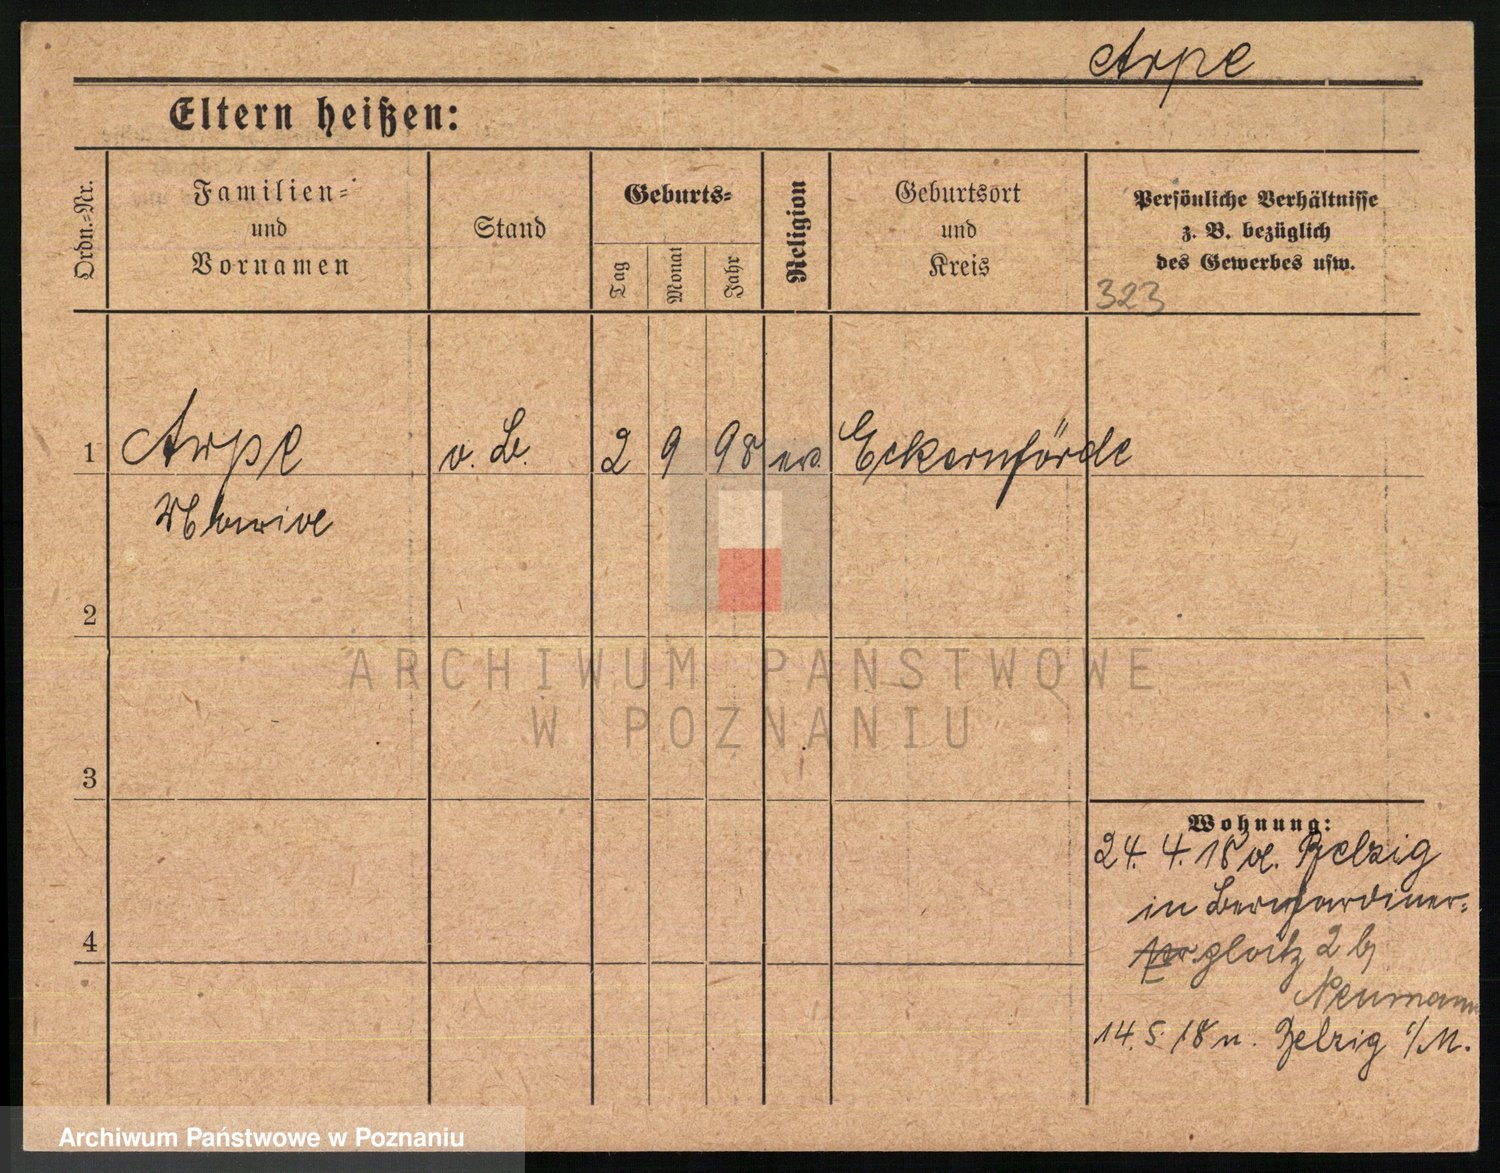 Arpe
Eltern heißen:
Ordn.-Nr.
Familien-
und
Vornamen
Stand
Geburts-
Tag
Monat
Jahr
Religion
Geburtsort
und
Kreis
Persönliche Verhältnisse
z. B. bezüglich
des Gewerbes usw.
323
1 Arpe o. B. 2 9 98 ev. Eckernförde
2
3
4
Wohnung:
24. 4. 18 v. Belzig
in Bernhardiner-
platz 2 b/
Neumann
14. 5. 18 n. Belzig i/M.
ARCHIWUM PAŃSTWOWE
W POZNANIU
Archiwum Państwowe w Poznaniu